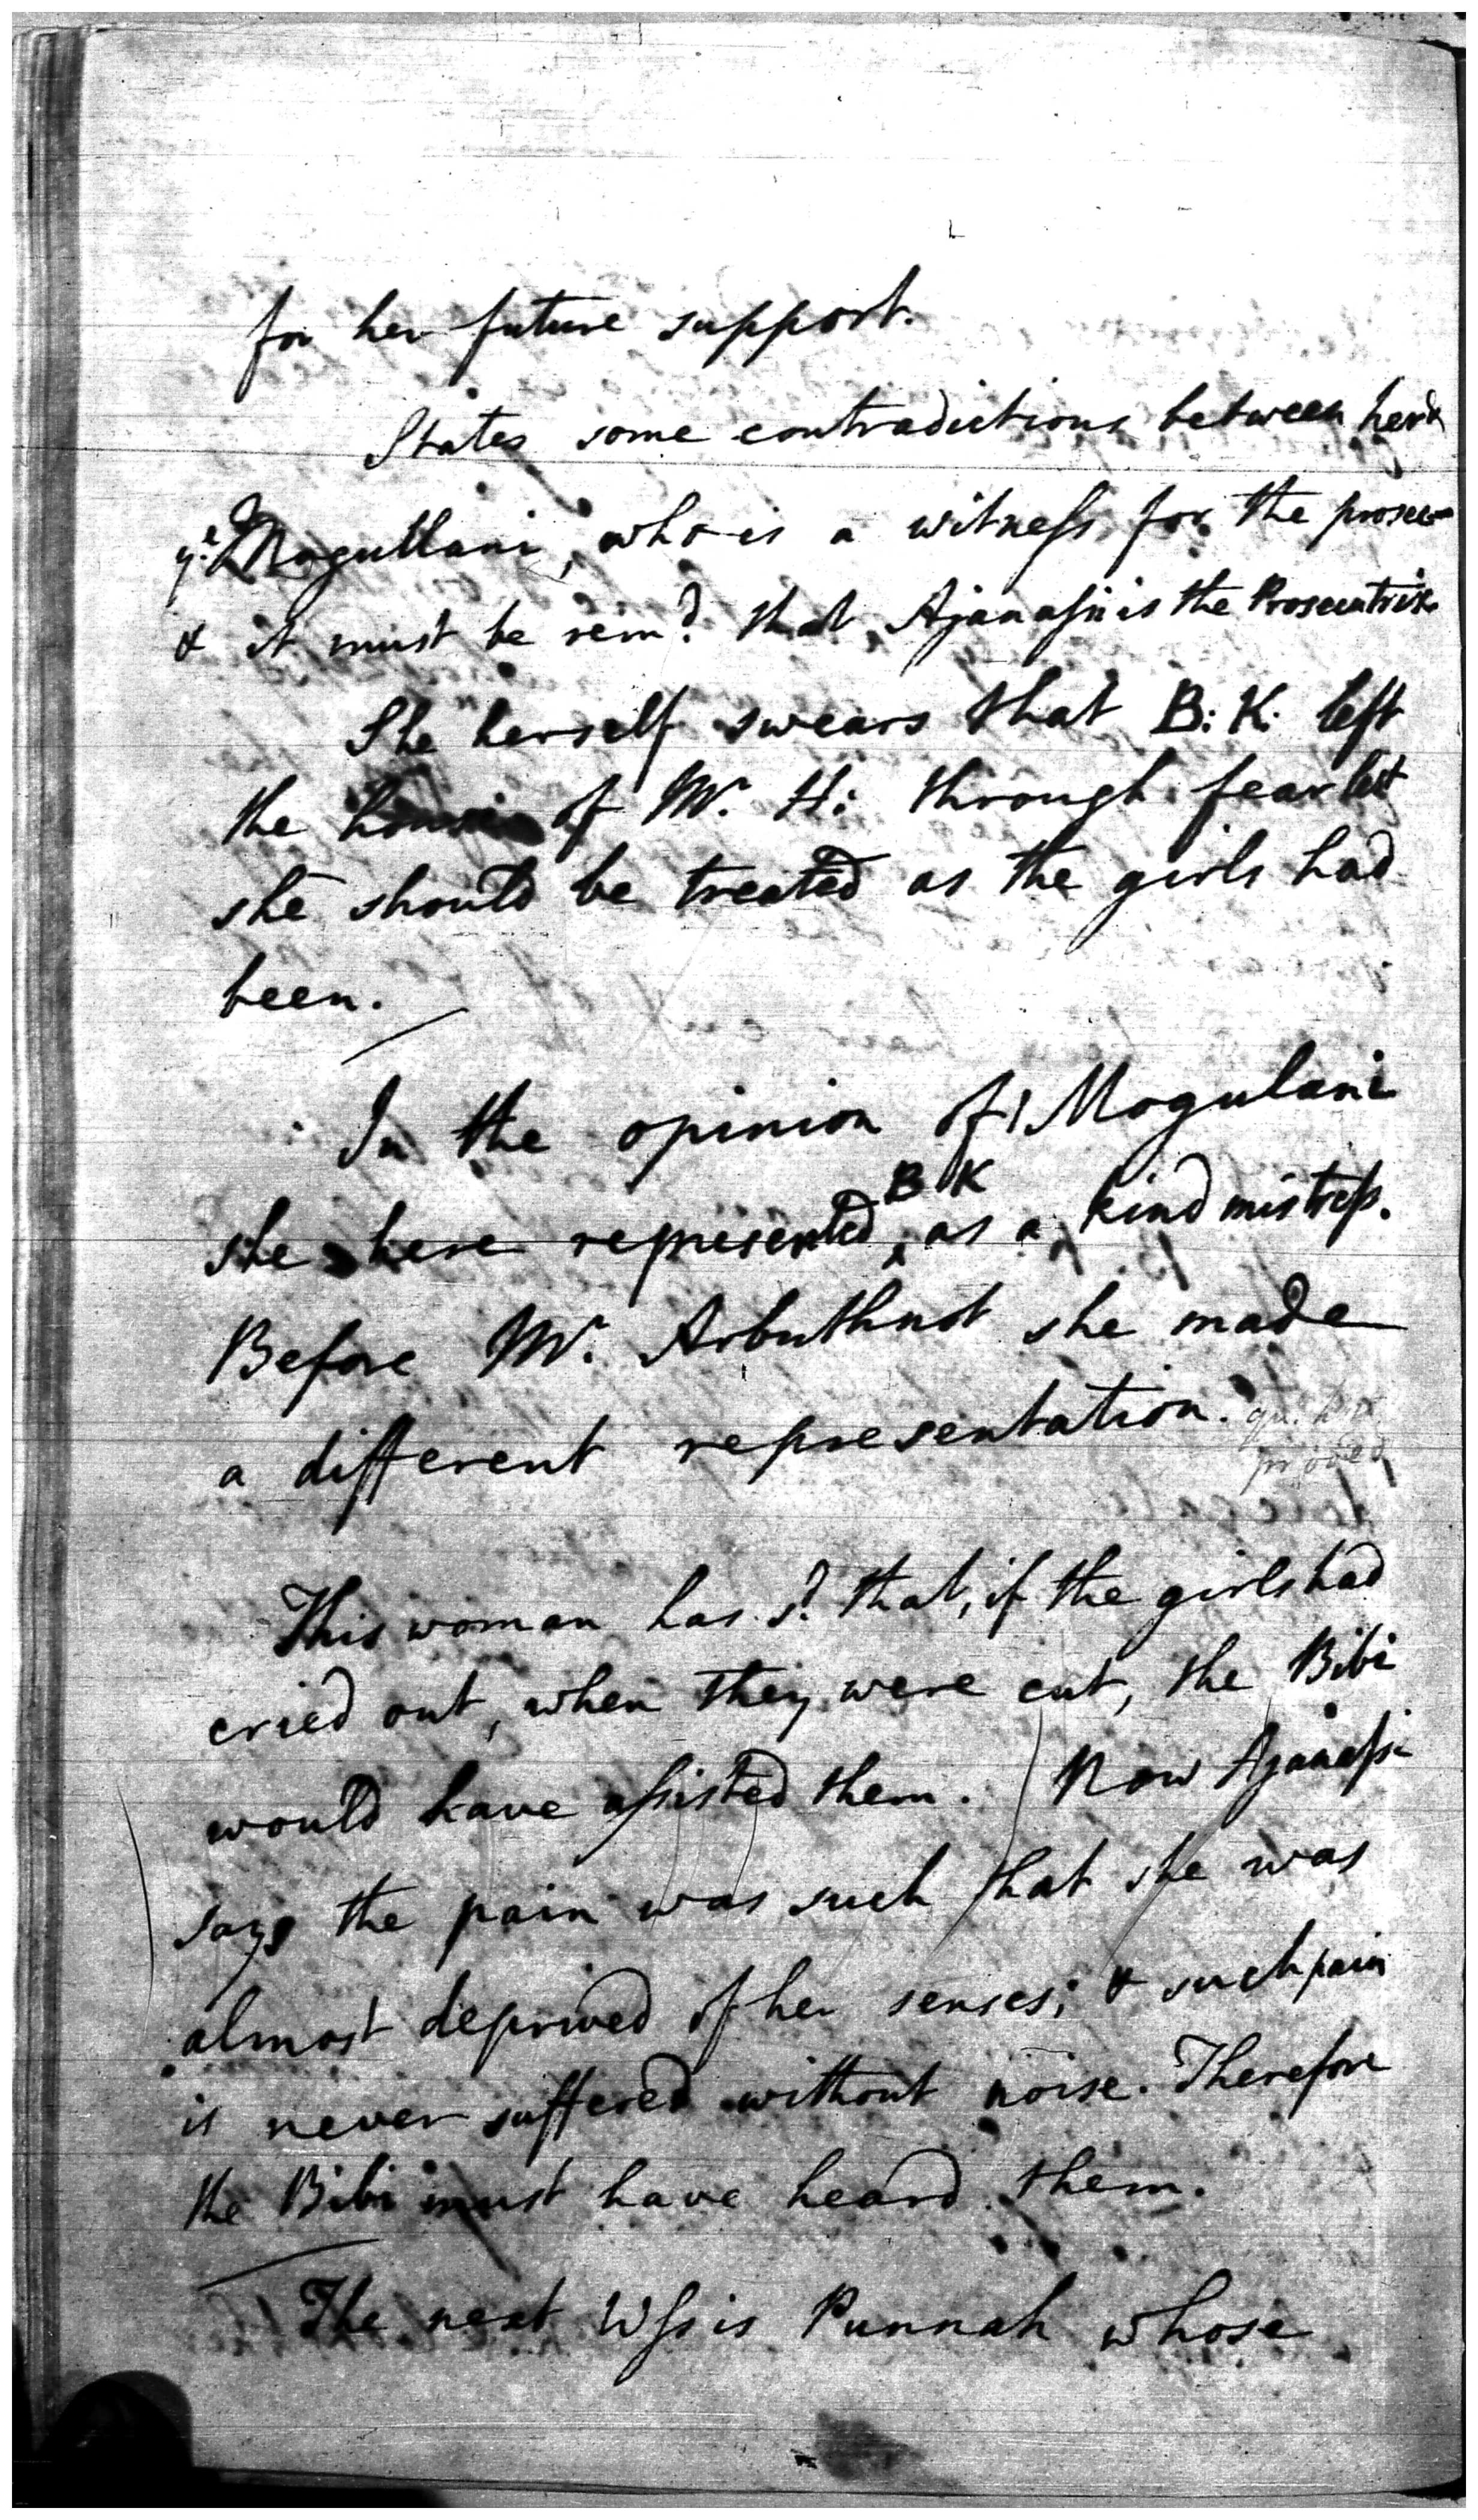 for her future support.
States some contradictions between her &
ye. Mogullani, who is a witness for the prosecn
& it must be remd. that Ajanassi is the Prosecutrix
She herself swears that B: K. left
the house of Mr. H: through fear lest
she should be treated as the girls had
been.
In the opinion of Mogulani
she here represented B K as a kind mistress.
Before Mr. Arbuthnot she made
a different representation. qu. how
proved
This woman has sd. that, if the girls had
cried out, when they were cut, the Bibi
would have assisted them. Now Ajanassi
says the pain was such that she was
almost deprived of her senses; & such pain
is never suffered without noise. Therefore
the Bibi must have heard them.
The next Wss is Punnah whose